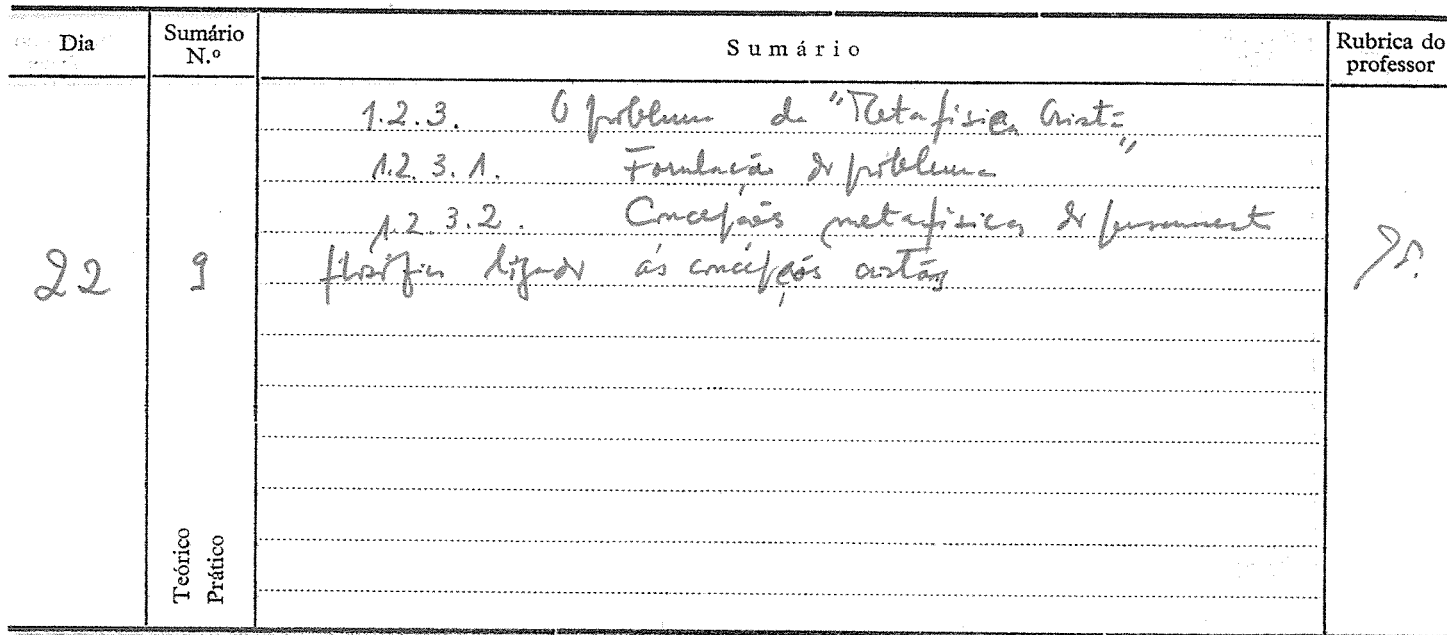 Dia
Sumário N.º
Sumário
Rubrica do professor
22
9
1.2.3. O problema da "Metafísica Cristã"
1.2.3.1. Formulação do problema
1.2.3.2. Concepções metafísicas do pensamento
filosófico ligado às concepções cristãs
Teórico
Prático